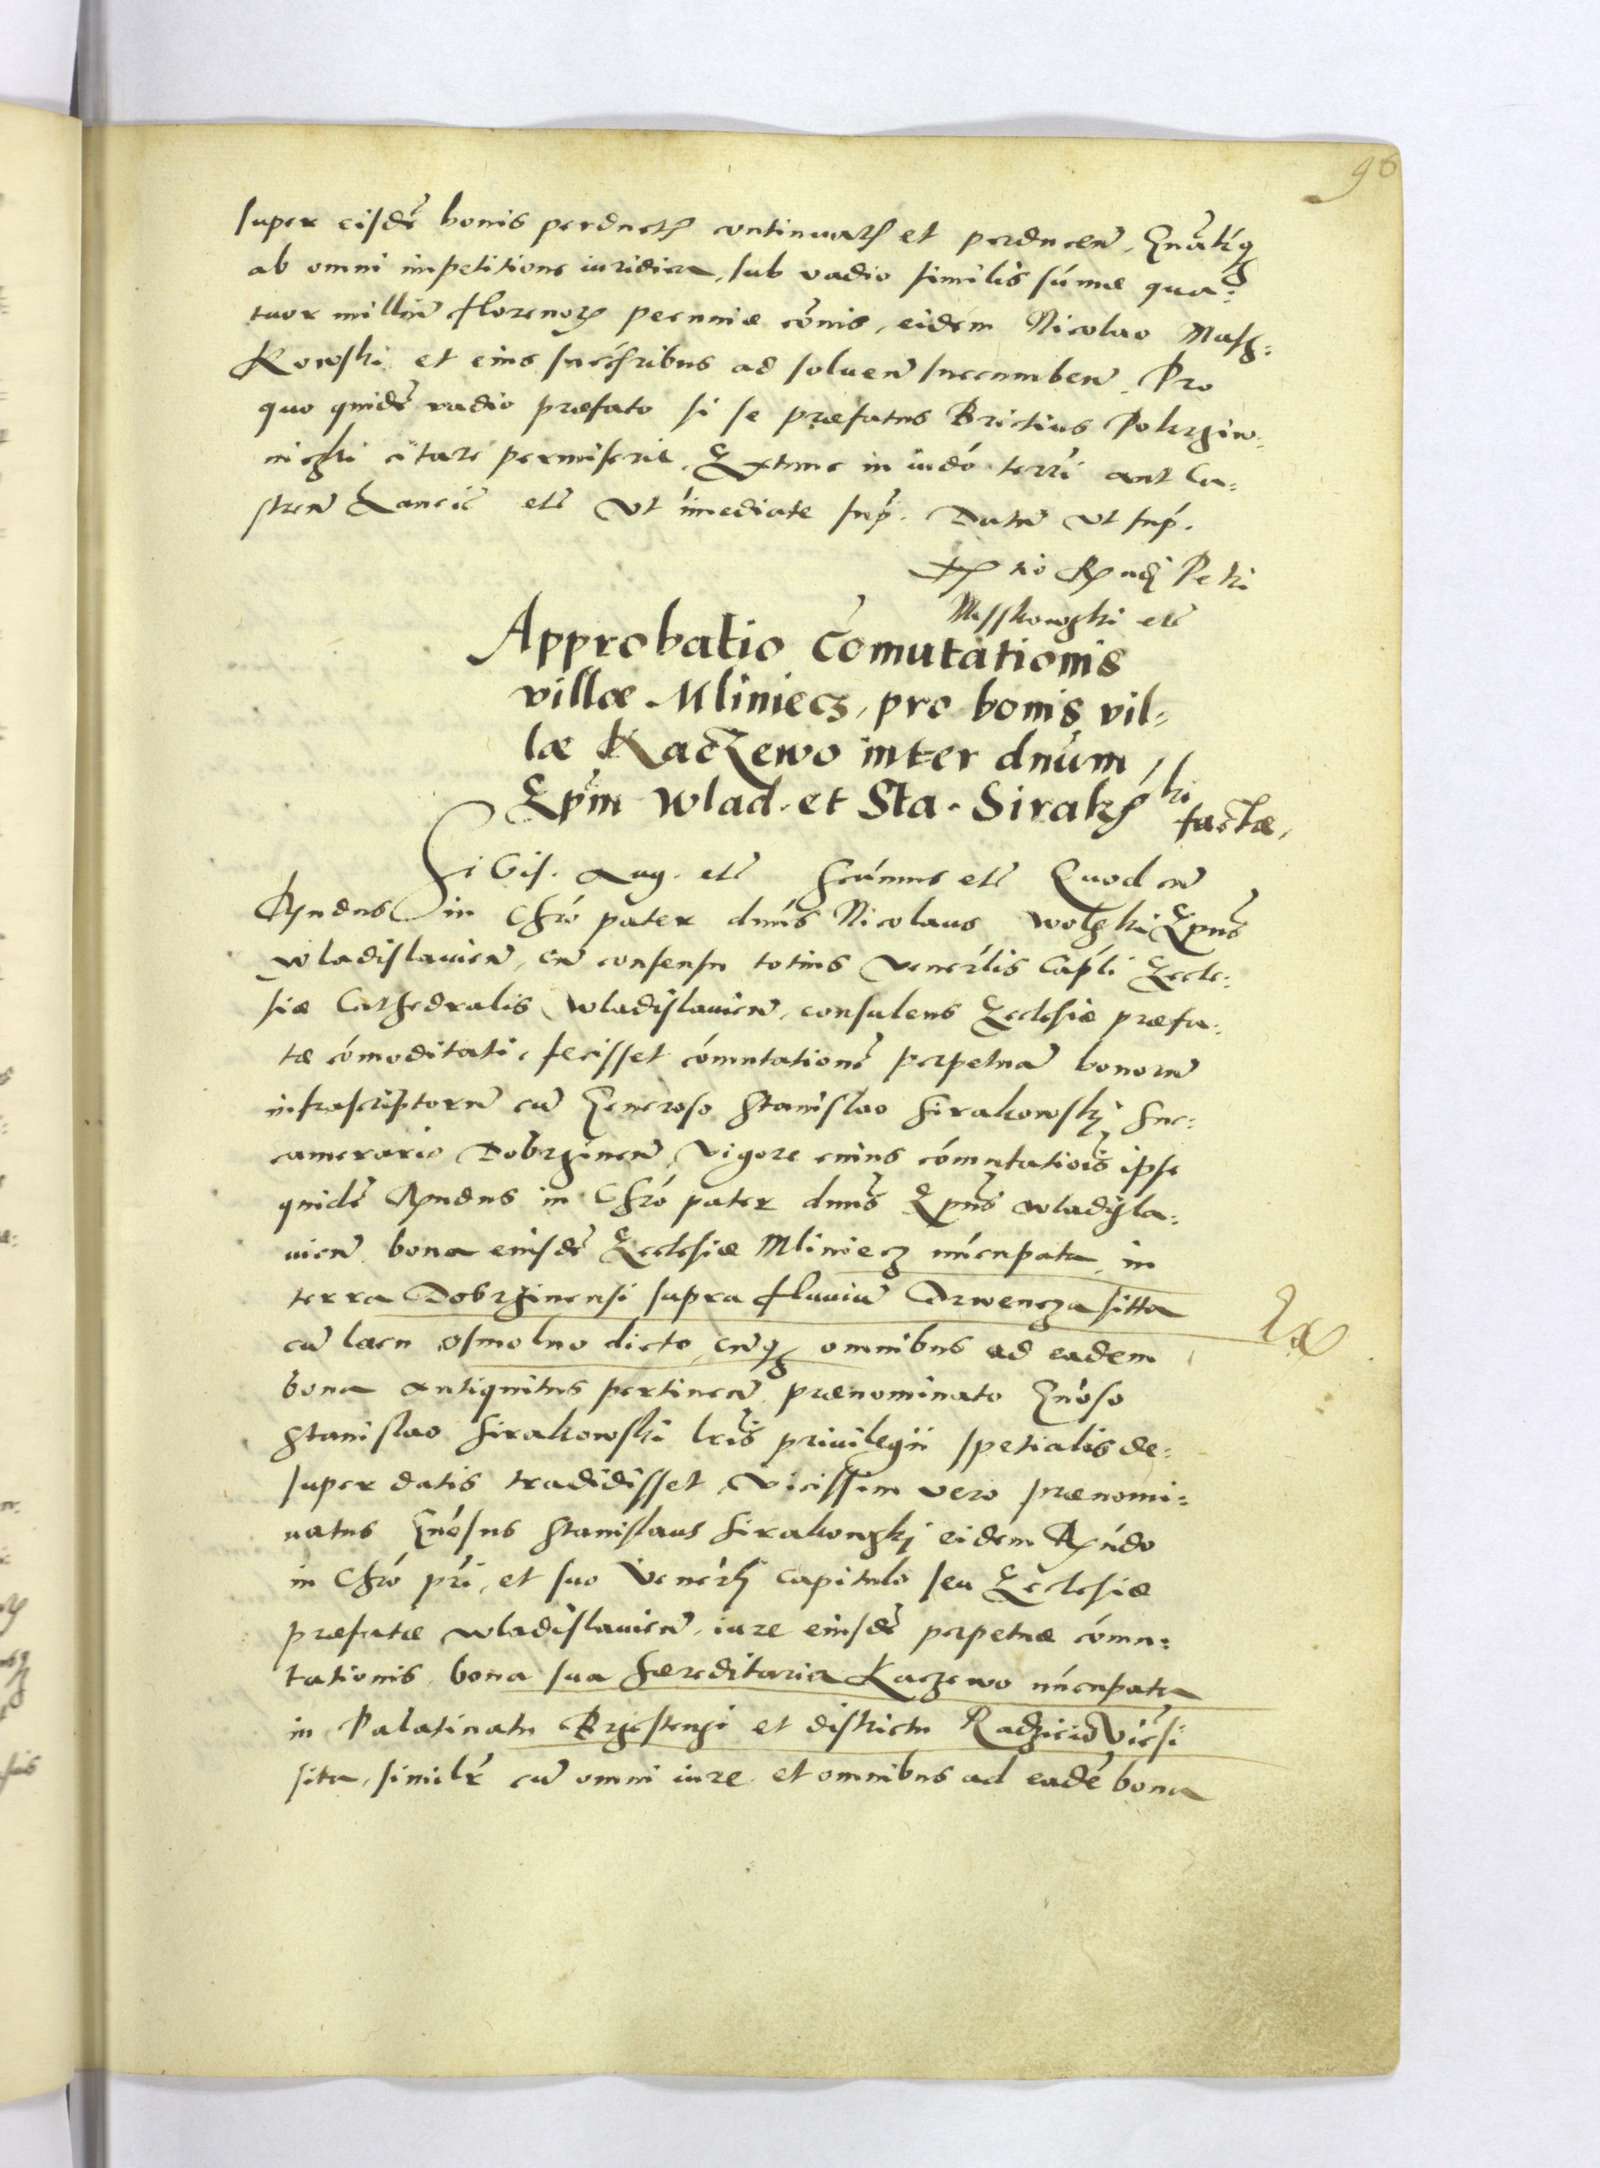 96
super eisdē bonis perductꝫ continuatꝫ et perducen̄, Gn̄alitꝫ
ab omni impetitione iuridica, sub vadio similis sum̄ae qua-
tuor milliū florenoꝝ pecuniae cōmis, eidem Nicolao Masz-
kowski et eius succ̄sribus ad soluen̄ succumben̄, Pro
quo quidē vadio praefato si se praefatus Brictius Pokrziw-
niczki citarē permiserit, Extunc in iudō terrī aut ca-
stren̄ Lancic̄ etc̄ Vt im̄ediate sup̄. Datū vt sup̄.
Rndi Petri
Misskowski etc̄
Approbatio Com̄utationis
villae Mliniecz, pro bonis vil-
lae Kaczewo inter dnūm
Ep̄m Wlad. et Sta. Sirakꝫki
factae,
Sigis. Aug. etc̄ Scūmus etc̄ Quod cū
Rn̄dus in Chrō pater dnūs Nicolaus Wolski Ep̄us
Wladislauien̄, cū consensu totius Venerl̄is Cap̄li Eccle-
siae Cathedralis Wladislauien̄, consulens Ecclesiae praefa-
tae com̄oditati, fecisset com̄utationē perpetuā bonorū
infrascriptorū cū Generoso Stanislao Sirakowsky Suc-
camerario Dobrzinen̄, Vigore cuius com̄utatiōis ipse
quidē Rn̄dus in Chrō pater dnūs Ep̄us Wladisla-
uien̄ bona eiusdē Ecclesiae Mliniecz nūcupata, in
terra Dobrzinensi supra fluuiū Drwencza sitta
cū lacu Osmolno dicto, cūqꝫ omnibus ad eadem
bona antiquitus pertinen̄ praenominato Gn̄oso
Stanislao Sirakowski lrīs priuilegii spetialis de-
super datis tradidisset, Vicissim vero praenomi-
natus Gn̄osus Stanislaus Sirakowski eidem Rn̄do
in Chrō pr̄i, et suo Venerl̄i capitulo seu Ecclesiae
praefatae Wladislauien̄, iure eiusdē perpetuae com̄u-
tationis bona sua haereditaria Kaczewo nūcupata
in Palatinatu Brzestensi et districtu Radzieiouiēsi
sita, similr̄ cū omni iure et omnibus ad eadē bona